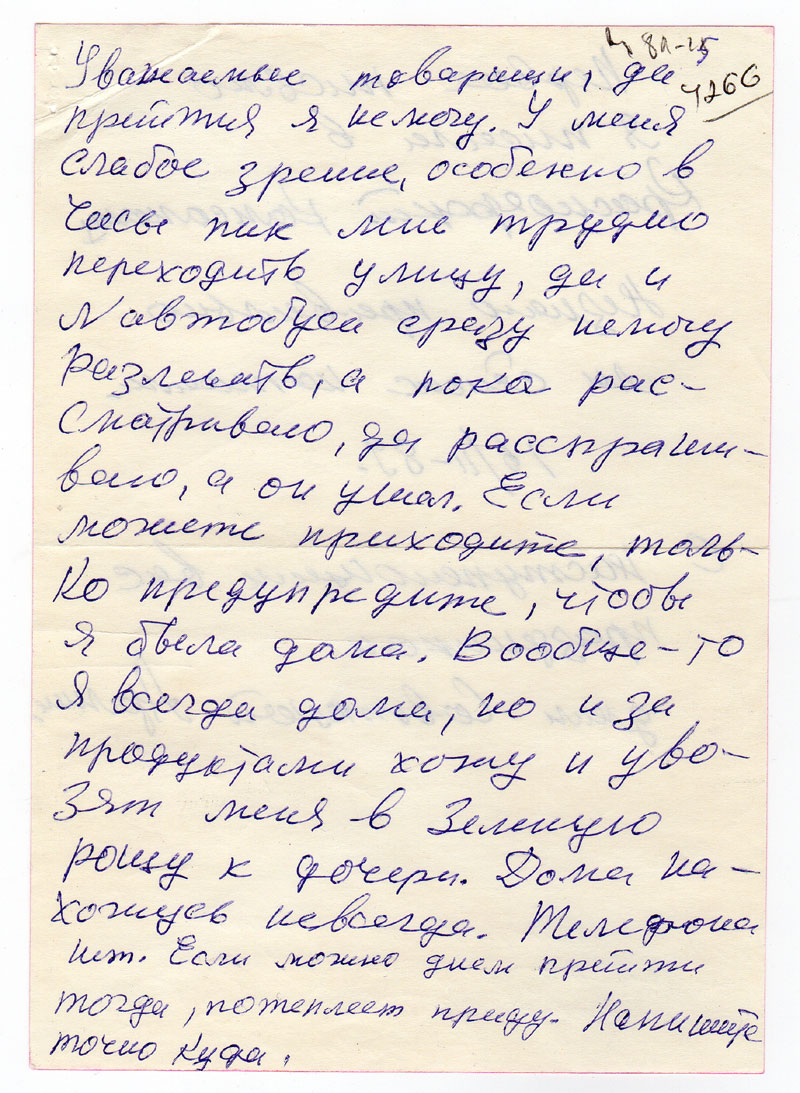 Ч 81-15
7266
Уважаемые товарищи, да
прийтия я немогу. У меня
слабое зрение, особенно в
часы пик мне трудно
переходить улицу, да и
N автобуса сразу немогу
различать, а пока рас-
сматриваю, да расспраши-
ваю, а он ушел. Если
можете приходите, толь-
ко предупредите, чтобы
я была дома. Вообще-то
я всегда дома, но и за
продуктами хожу и уво-
зят меня в Зеленую
рощу к дочери. Дома на-
хожусь невсегда. Телефона
нет. Если можно днем прейти
тогда, потеплеет приду. Напишите
точно куда.